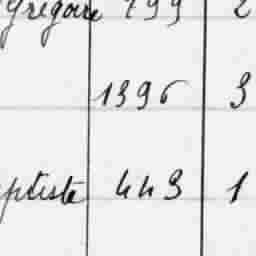 Grégoire 799 2
1396 3
aptiste 443 1